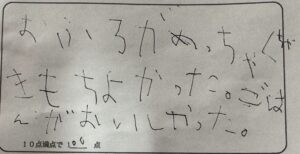 おふろがめっちゃくちゃ
きもちよかった。ごは
んがおいしかった。
10点満点で 100 点